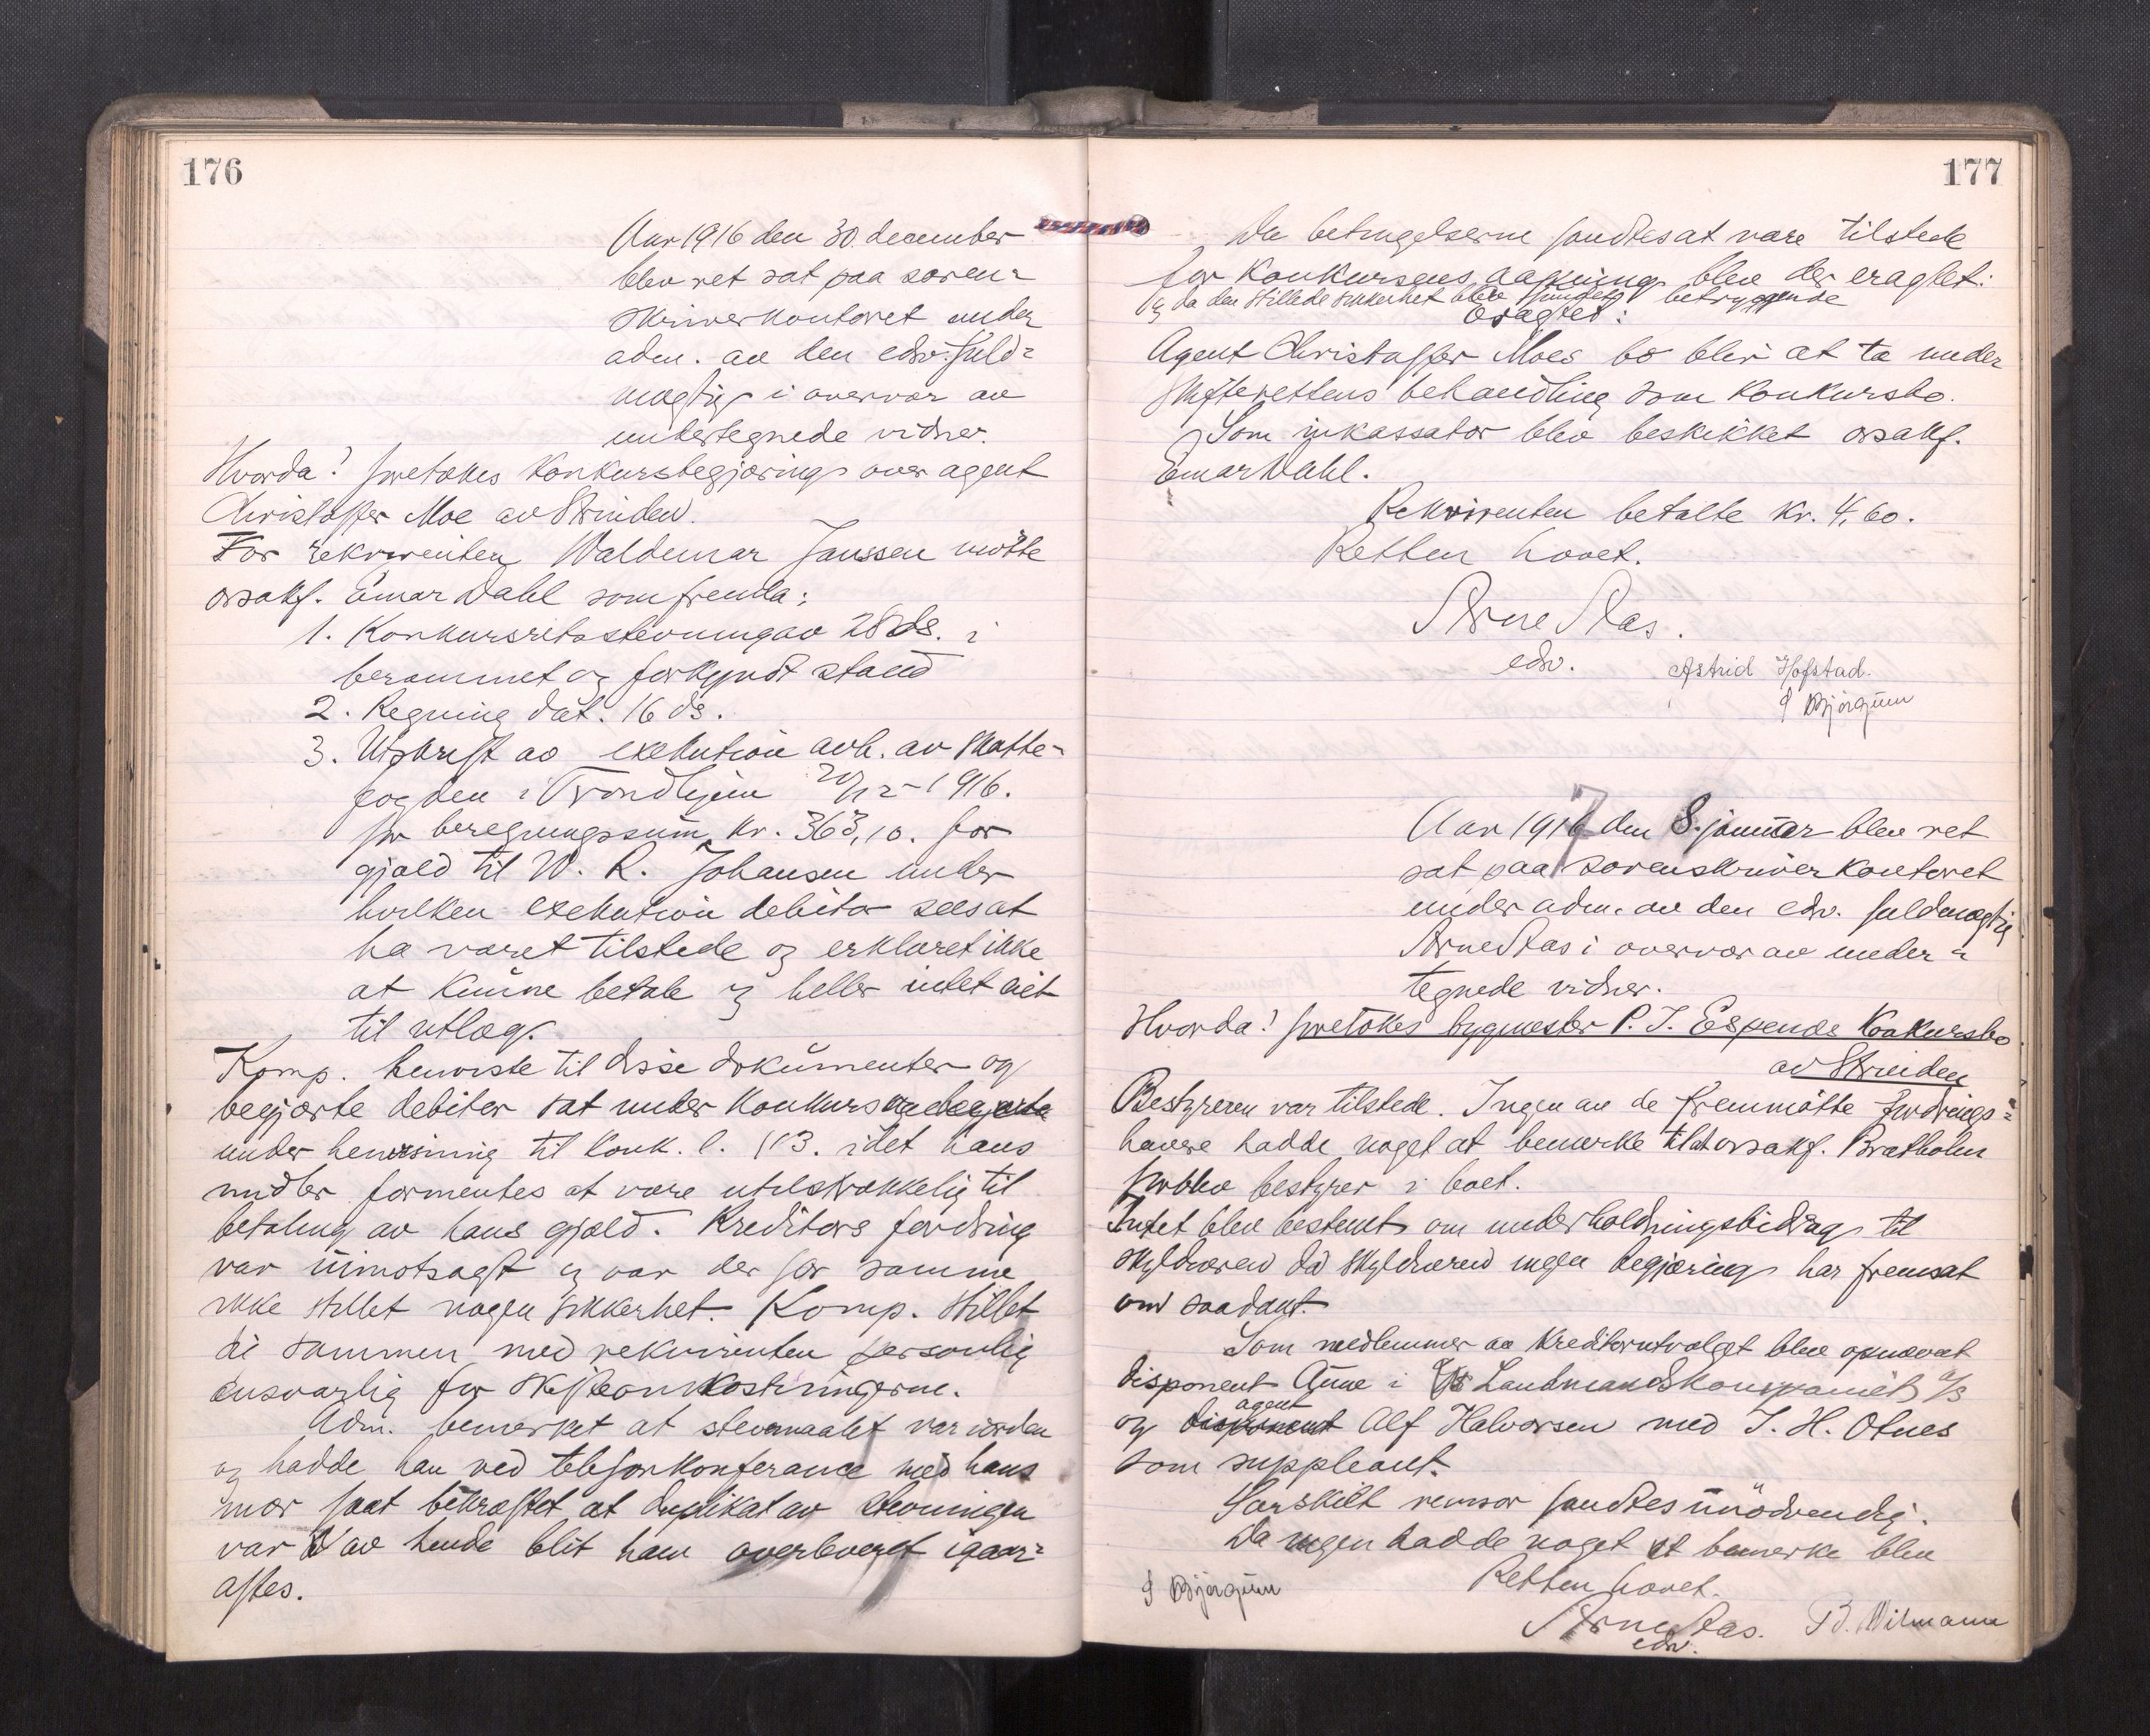 176
Aar 1916 den 30. december
blev ret sat paa soren-
skriverkontoret under
adm. av den edsv. fuld-
mægtig i overvær av
undertegnede vidner.
Hvorda! foretokes konkursbegjæring over agent
Christoffer Moe av Strinden.
For rekvirenten Waldemar Janssen møtte
orsakf. Einar Dahl som fremla:
1. Konkursretsstevning av 28 ds. i
berammet og forkyndt stand
2. Regning dat. 16 ds.
3. Utskrift av exekution avh. av skatte-
fogden i Trondhjem 20/12-1916.
for beregningssum kr. 363,10. for
gjæld til W. R. Johansen under
hvilken exekution debitor sees at
ha været tilstede og erklæret ikke
at kunne betale og heller intet eiet
til utlæg.
Komp. henviste til disse dokumenter og
begjærte debitor sat under konkurs
under henvisning til konk. l. § 3. idet hans
midler formentes at være utilstrækkelig til
betaling av hans gjæld. Kreditors fordring
var uimotsagt og var der for samme
ikke stillet nogen sikkerhet. Komp. stillet
si sammen med rekvirenten personlig
ansvarlig for skifteomkostningerne.
Adm. bemerket at stevnemaalet var i orden
og hadde han ved telefonkonferance med hans
mor faat bekræftet at duplikat av stevningen
var av hende blit ham overleveret igaar-
aftes.
177
Da betingelserne fandtes at være tilstede
for konkursens aapning blev der eragtet:
og da den stillede sikkerhet blev fundet betryggende
Eragtet:
Agent Christoffer Moes bo blir at ta under
skifterettens behandling som konkursbo.
Som inkassator blev beskikket orsakf.
Einar Dahl.
Rekvirenten betalte kr. 4,60.
Retten hævet.
Arne Aas.
edsv.
Astrid Hofstad.
J Bjørgum
Aar 1917 den 8. januar blev ret
sat paa sorenskriverkontoret
under adm. av den edsv. fuldmægtig
Arne Aas i overvær av under-
tegnede vidner.
Hvorda! foretokes bygmester P. J. Espends konkursbo
av Strinden
Bestyreren var tilstede. Ingen av de fremmøtte fordrings-
havere hadde noget at bemerke til at orsakf. Bratholm
forblev bestyrer i boet.
Intet blev bestemt om underholdningsbidrag til
skyldneren da skyldneren ingen begjæring har fremsat
om saadant.
Som medlemmer av kreditorutvalget blev opnævnt
disponent Aune i Landmandskompaniet a/s
agent
og disponent Alf Halvorsen med J. H. Olues
som suppleant.
Særskilt revisor fandtes unødvendig.
Da ingen hadde noget at bemerke blev
Retten hævet.
J Bjørgum
Arne Aas.
edsv.
B. Wilmann